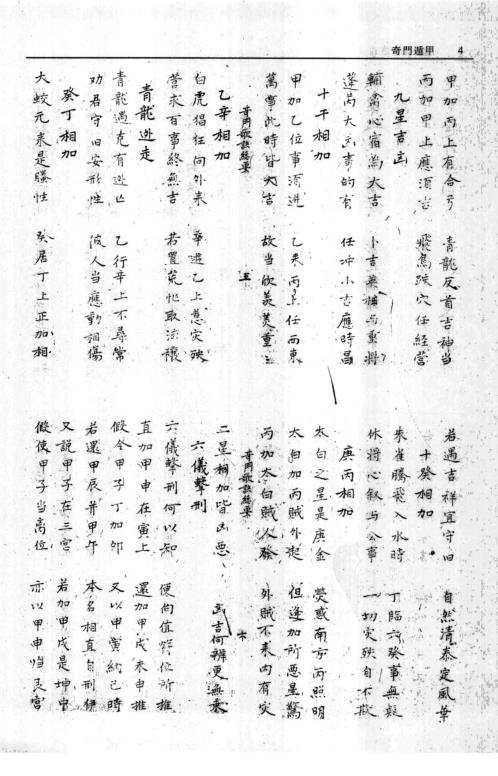 奇門遁甲　4
甲加丙上有合亏　青龍反首吉神当
丙加甲上應須吉　飛鳥跌穴任經營
九星吉凶
輔禽心宿為大吉　卜吉
蓬芮大凶事的有　任冲小吉應時昌
十干相加
甲加乙位事源進　乙来丙上任西東
萬事此時皆大吉　故当欣羡美重重
奇門歌訣總要　五
乙辛相加
白虎猖狂向外来　辛遊乙上惹灾殃
营求百事終無吉　若置荒地取法禳
青龍逃走
青龍遇克有逃亡　乙行辛上不尋常
功君守旧安形性　彼人当應動詞傷
癸丁相加
大蛟元来是騰性　癸居丁上正加相
若遇吉祥宜守旧　自然清泰定風華
十癸相加
朱雀騰飛入水時　丁臨六癸事無疑
休將心叙与公事　一切灾殃自不欺
庚丙相加
太白之星是庚金　熒惑南方丙照明
太白加丙賊外起　但逢加所惡星驚
丙加太白賊人發　外賊不来内有灾
奇門歌訣總要　六
二星相加皆凶惡　凶吉何辨更無来
六儀擊刑
六儀擊刑何以知　便向值符位所推
直加甲申在寅上　還加甲戌未申推
假令甲子丁加卯　又以甲寅納巳時
若還甲辰并甲午　本名相直自刑
又說甲子在三宮　若加甲戌是坤中
假使甲子当高位　亦以甲申怕艮宮